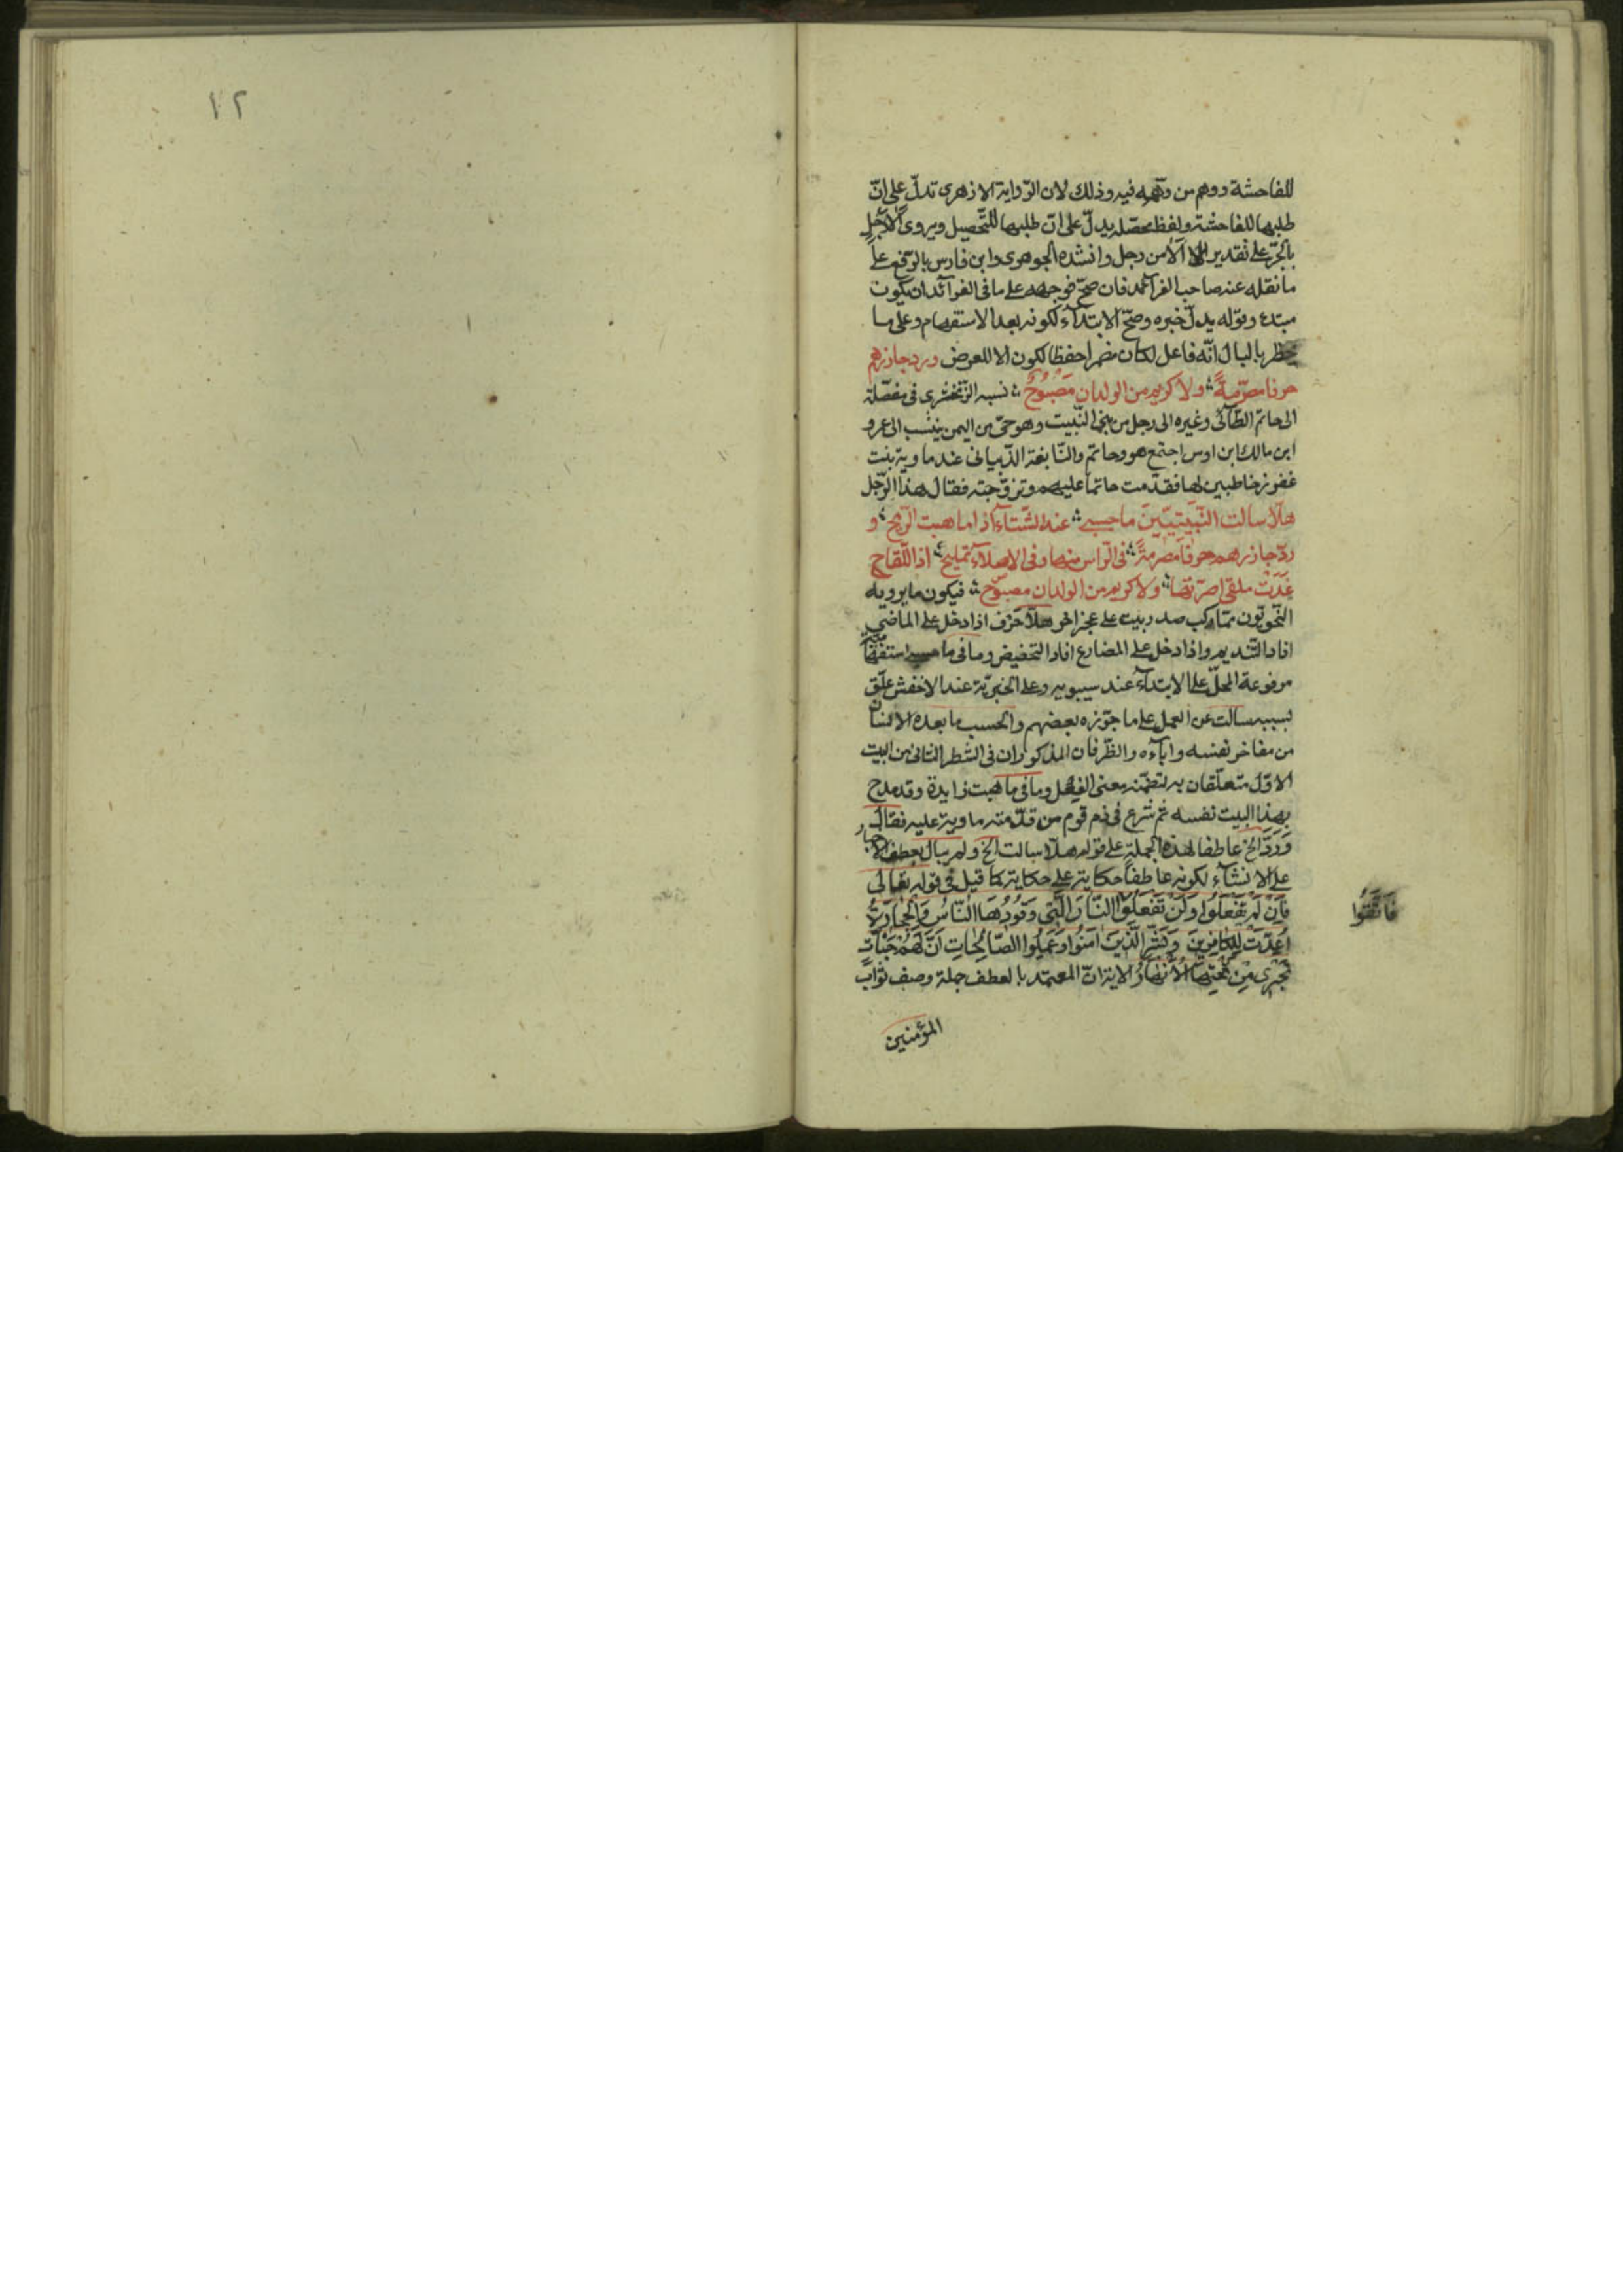 للفاحشة ووهم من وهّمه فيه وذلك لان الرّواية الازهرى تدلّ على انّ
طلبها للفاحشة ولفظ محصّلة يدلّ على انّ طلبها للتّحصيل ويروى الا رجلٍ
بالجرّ على تقدير الا من رجل وانشده الجوهرى وابن فارس بالرّفع على
ما نقله عنه صاحب الفرآئد فان صحّ فوجهه على ما فى الفرآئد ان يكون
مبتدء وقوله يدلّ خبره وصحّ الابتدآء لكونه بعد الاستفهام وعلى ما
يخطر بالبال انّه فاعل لكان مضمرا حفظا لكون الا للعرض ورد جازرهم
حرفا مصرّمةً ولا كريم من الولدان مَصْبُوحُ نسبه الزّمخشرى فى مفصّله
الى حاتم الطّآئى وغيره الى رجل من بنى النّبيت وهو حىّ من اليمن ينتسب الى عمرو
ابن مالك ابن اوس اجتمع هو وحاتم والنّابغة الذّبيانى عند ماوية بنت
عفزر خاطبين لها فقدّمت حاتما عليهم وتزوّجته فقال هذا الرّجل
هلّا سالت النّبيتيّين ما حسبى عند الشّتآء اذا ما هبت الرّيح و
ردّ جازرهم حرفا مصرّمةً فى الرّاس منها وفى الاصلآء تمليح اذا اللّقاح
غَدَتْ ملقى اصرّتها ولا كريم من الولدان مصبوح فيكون ما يرويه
النّحويّون ممّا ركب صدر بيت على عجز اخر هلّا حرف اذا دخل على الماضى
افاد التّنديم واذا دخل على المضارع افاد التحضيض وما فى ما حسبى استفهاميّة
مرفوعة المحلّ على الابتدآء عند سيبويه وعلى الخبريّة عند الاخفش علّق
بسببه سالت عن العمل على ما جوّزه بعضهم والحسب ما يعده الانسان
من مفاخر نفسه وابآءه والظّرفان المذكوران فى الشطر الثانى من البيت
الاوّل متعلّقان به لتضمّنه معنى الفعل وما فى ما هبت زايدة وقد مدح
بهذا البيت نفسه ثم شرع فى ذم قوم من قدّمته ماوية عليه فقال
وَرَدَّ الخ عاطفا لهذه الجملة على قوله هلّا سالت الخ ولم يبال بعطف الاخبار
على الانشآء لكونه عاطفا حكاية على حكاية كما قيل فى قوله تعالى
فَاِنْ لَمْ تَفْعَلُوا وَلَنْ تَفْعَلُوا النّارَ الَّتِى وَقُودُهَا النّاسُ وَالْحِجَارَةُ
فَاتَّقُوا
اُعِدَّتْ لِلْكافِرِينَ وَبَشِّرِ الَّذِينَ آمَنُوا وَعَمِلُوا الصّالِحَاتِ اَنَّ لَهُمْ جَنّاتٍ
تَجْرِى مِنْ تَحْتِهَا الْاَنْهَارُ الاية انّ المعتمد بالعطف جملة وصف ثواب
المؤمنين
١٢